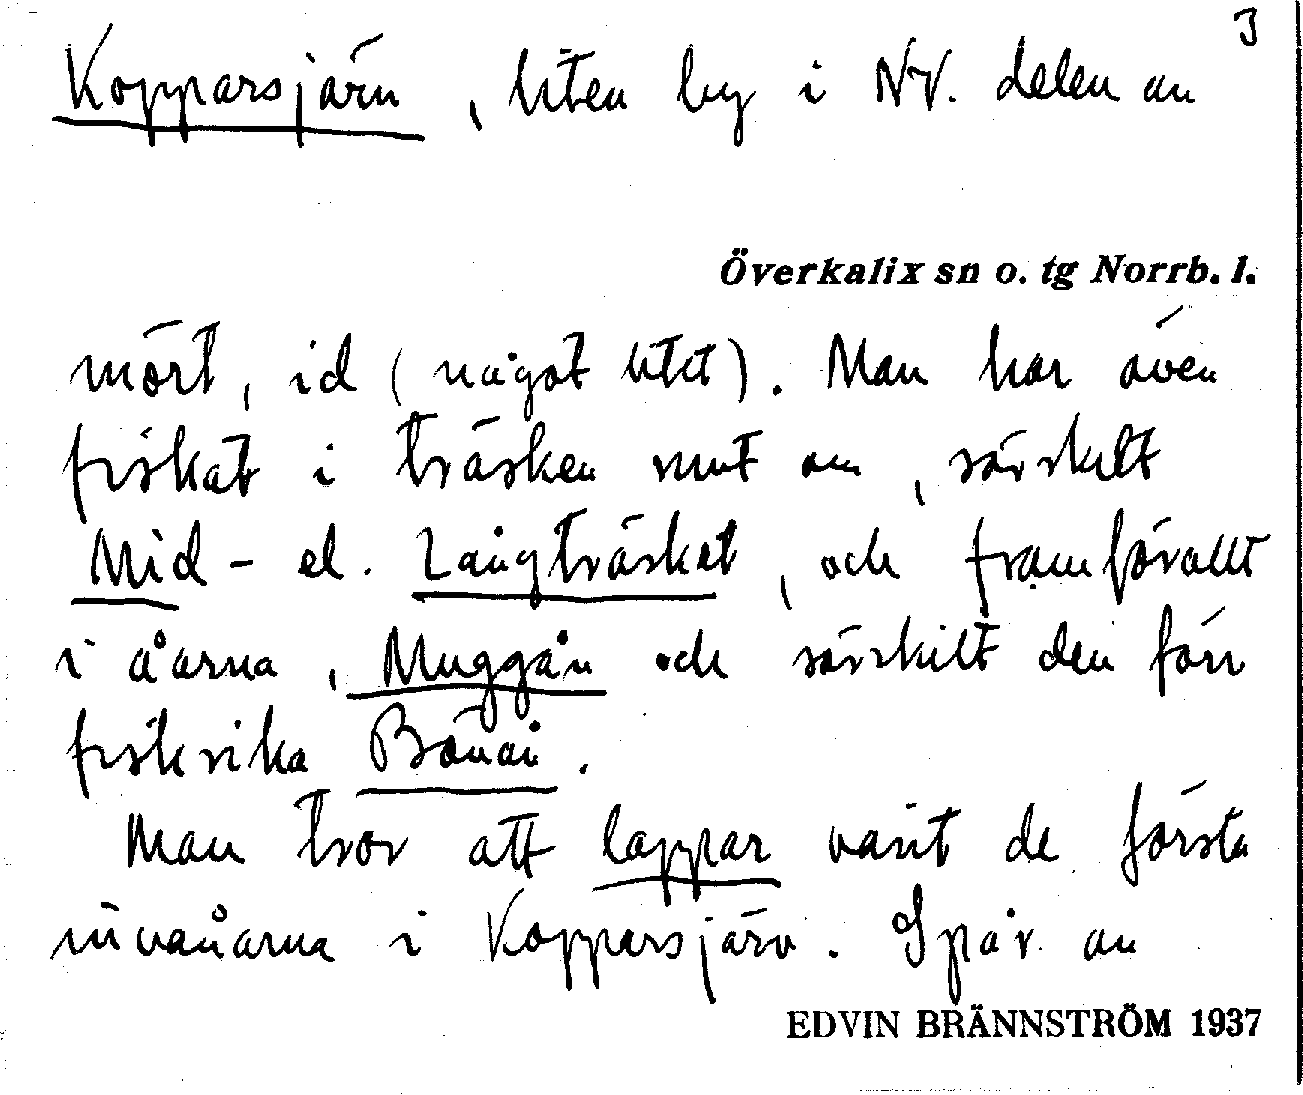 3
Kopparsjärv, liten by i NV. delen av
Överkalix sn o. tg Norrb. l.
mört, id (något litet). Man har även
fiskat i träsken runt om, särskilt
Mid- el. Långträsket, och framförallt
i åarna, Muggån och särskilt den förr
fiskrika Bönån.
Man tror att lappar varit de första
invånarna i Kopparsjärv. Spår av
EDVIN BRÄNNSTRÖM 1937